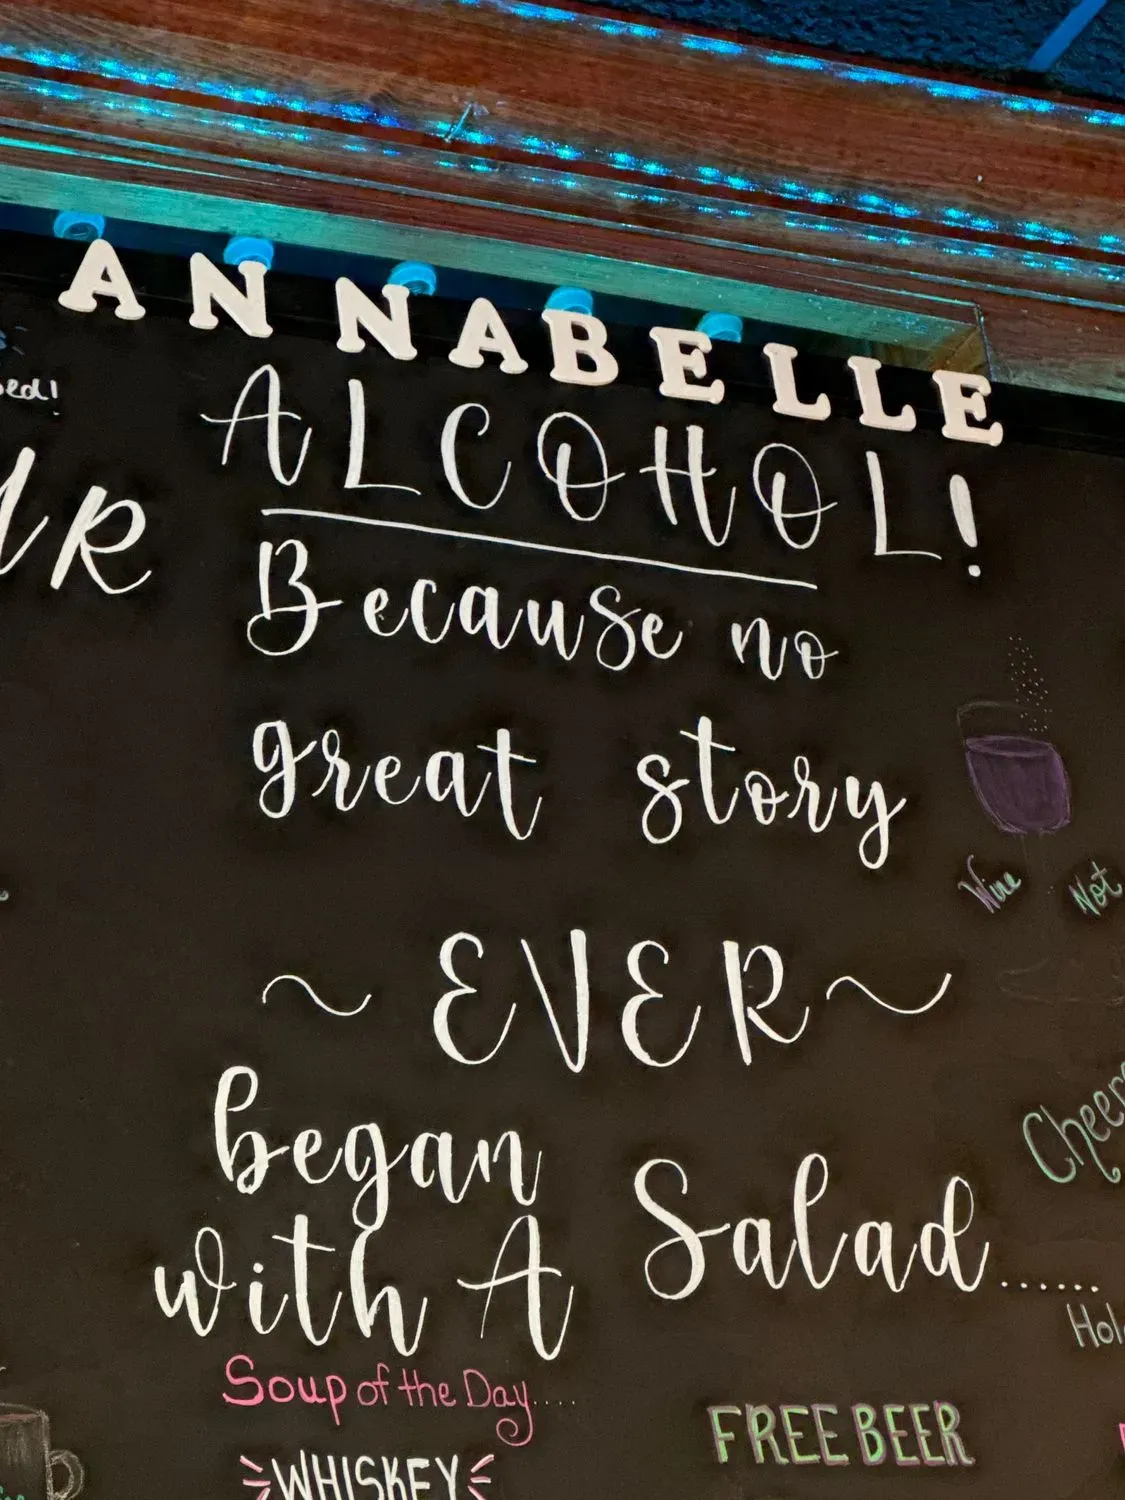 ANNABELLE
ALCOHOL!
Because no
great story
~ EVER ~
began
with A Salad......
Wine Not
Soup of the Day....
WHISKEY
FREE BEER